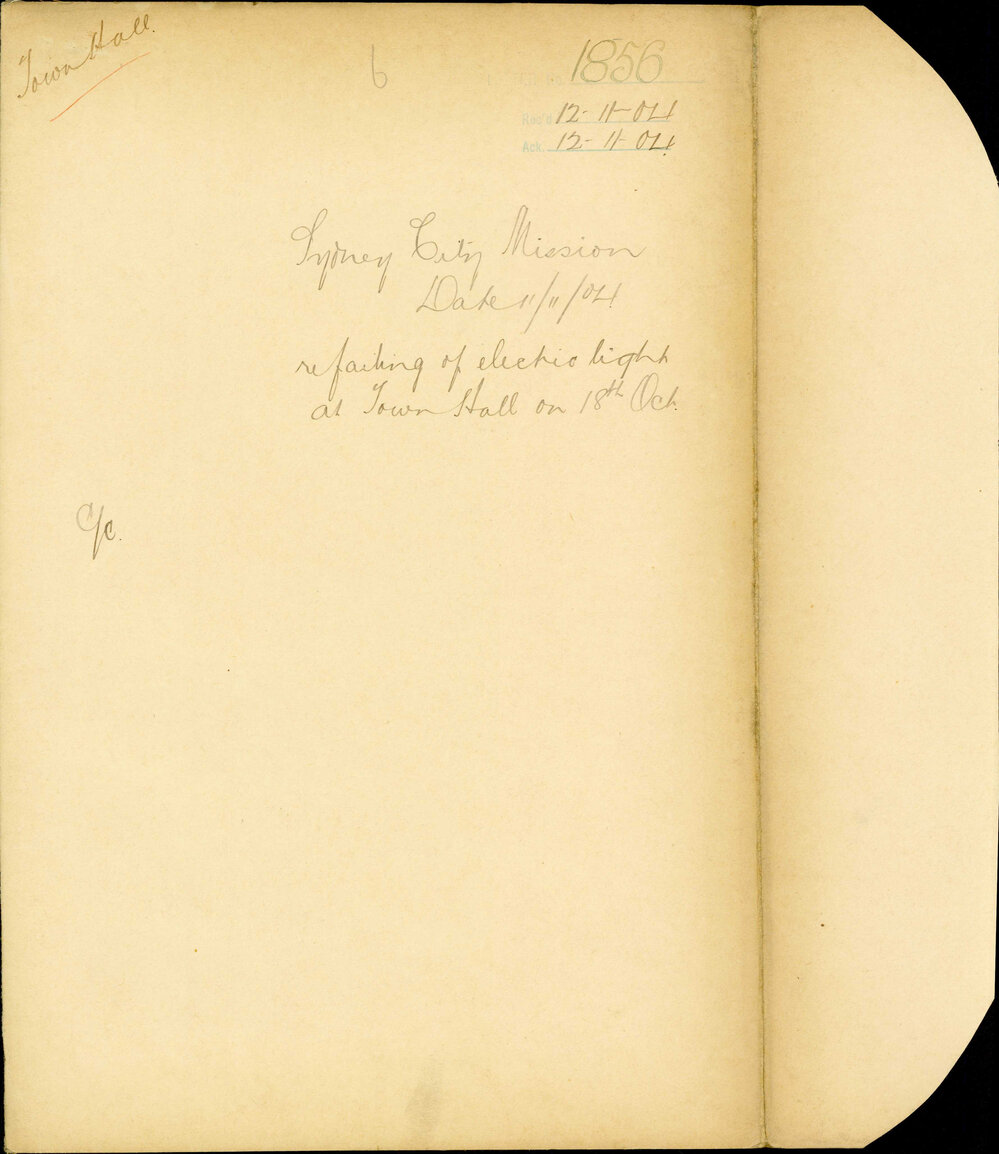 Town Hall.
6
1856
Rec'd 12-11-04
Ack. 12-11-04
Sydney City Mission
Date 11/11/04
re failing of electric light
at Town Hall on 18th Oct.
C/c.